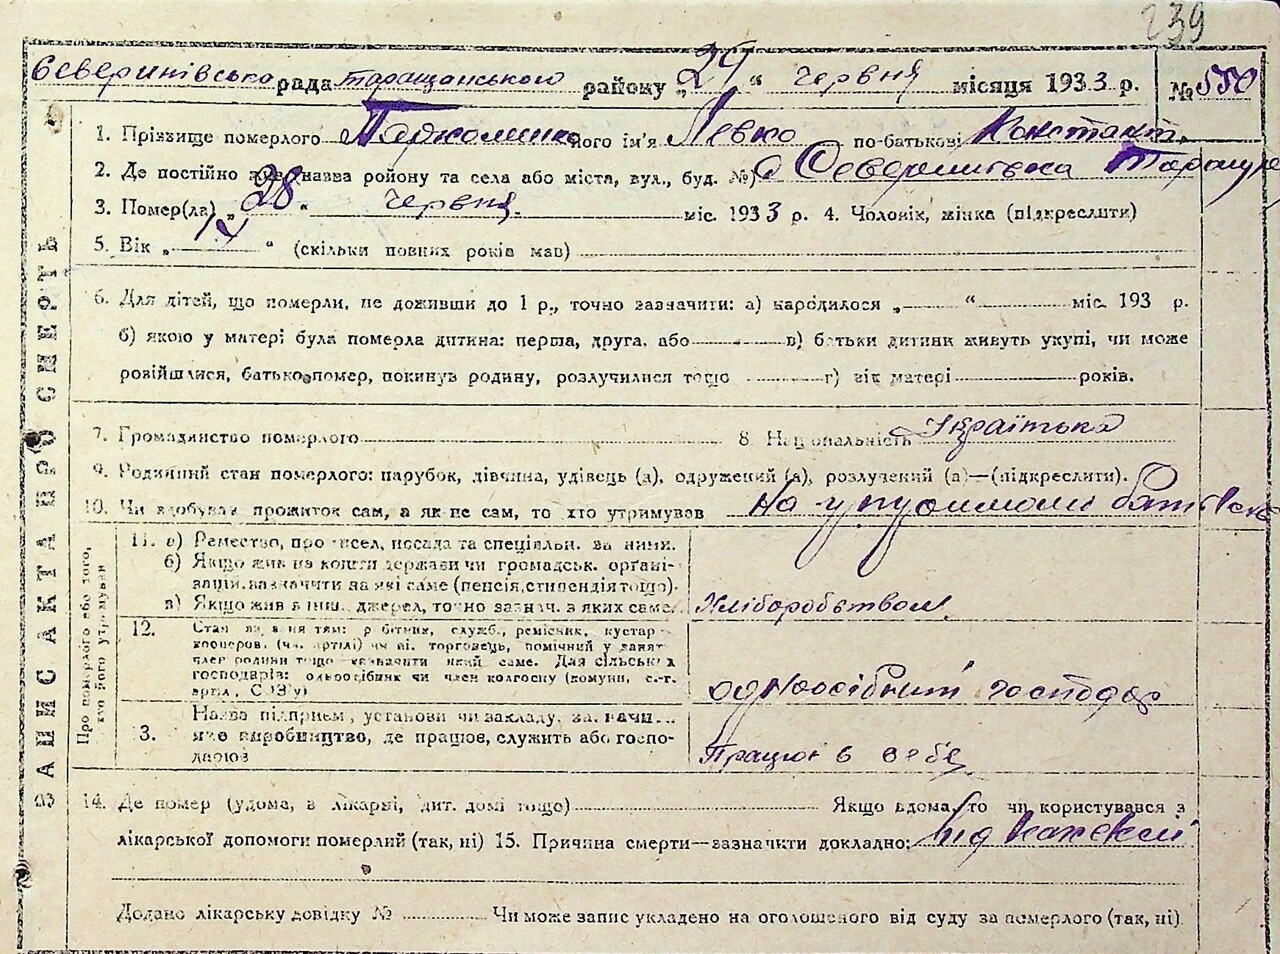 239
Северинівська рада таращанського району „29“ червня місяця 1933 р. № 550
1. Прізвище померлого Пархоменко його ім'я Левко по-батькові Констант.
2. Де постійно жив (назва району та села або міста, вул., буд. №) с Северинівка Таращ
3. Помер(ла) „28“ червня міс. 1933 р. 4. Чоловік, жінка (підкреслити)
5. Вік „12“ (скільки повних років мав)
6. Для дітей, що померли, не доживши до 1 р., точно зазначити: а) народилося „ “ міс. 193 р.
б) якою у матері була померла дитина: перша, друга, або в) батьки дитини живуть укупі, чи може
розійшлися, батько помер, покинув родину, розлучилися тощо г) вік матері років.
7. Громадянство померлого 8. Національність Українська
9. Родинний стан померлого: парубок, дівчина, удівець (а), одружений (а), розлучений (а)—(підкреслити).
10. Чи здобував прожиток сам, а як не сам, то хто утримував На утриманні
ЗАПИС АКТА ПРО СМЕРТЬ
Про померлого або того, хто його утримував
11. а) Ремество, промисел, посада та спеціяльн. за ними.
б) Якщо жив на кошти держави чи громадськ. органі-
зацій, зазначити за які саме (пенсія, стипендія тощо).
в) Якщо жив з інш. джерел, точно зазнач. з яких саме.
Хліборобством
12. Стан в занятті: робітник, служб., ремісник, кустар
кооперов. (чл. артілі) чи ні, торговець, помічний у занят.
член родини тощо зазначити який саме. Для сільськ.
господарів: одноосібник чи член колгоспу (комуни, с.-г.
артіл., СОЗ'у)
одноосібний господар
13. Назва підприєм., установи чи закладу, зазначи...
яке виробництво, де працює, служить або госпо-
дарює
Працює в себе
14. Де помер (удома, в лікарні, дит. домі тощо) Якщо вдома, то чи користувався з
лікарської допомоги померлий (так, ні) 15. Причина смерти—зазначити докладно: Від
Додано лікарську довідку № Чи може запис укладено на оголошеного від суду за померлого (так, ні)